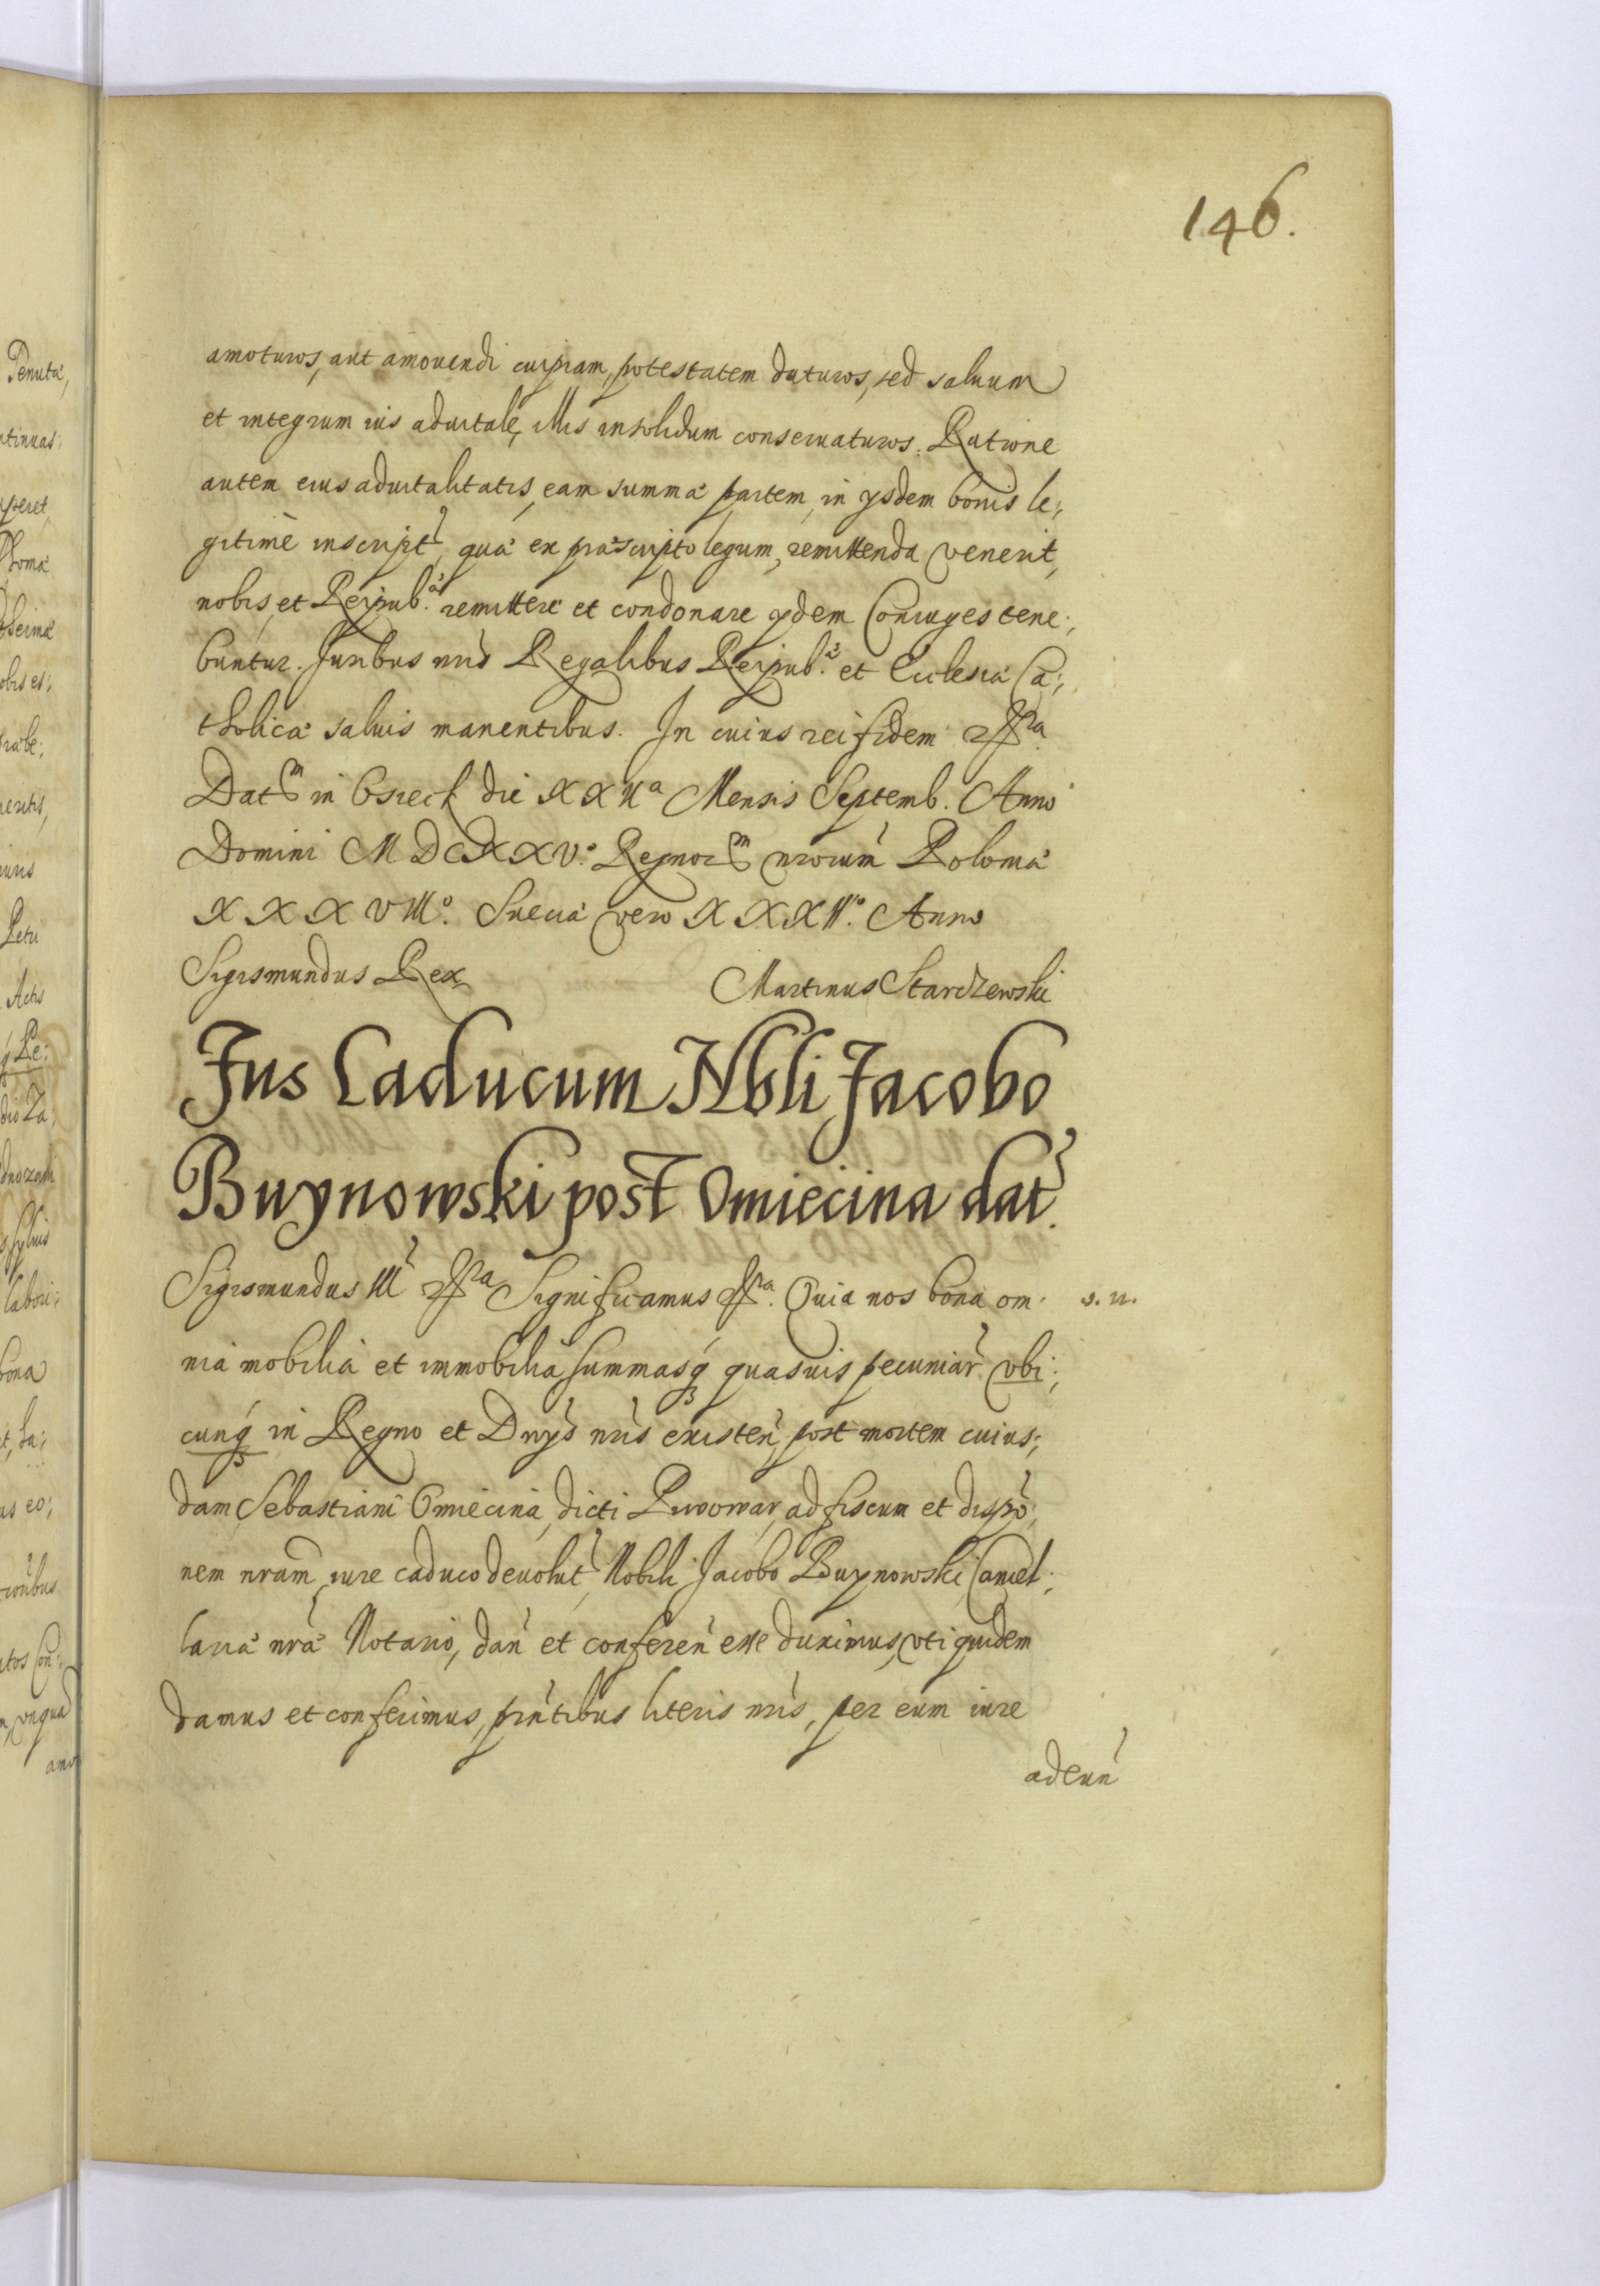 146.
amoturos, aut amouendi cuipiam, potestatem daturos, sed saluum
et integrum ius aduitale, illis insolidum conseruaturos. Ratione
autem eius aduitalitatis, eam summa partem, in ysdem bonis le;
gitimè inscript, qua ex præscripto legum, remittenda venerit,
nobis, et Reipub. remittere et condonare ydem Coniuges tene;
buntur. Juribus nris Regalibus Reipub. et Ecclesiæ Ca;
tholicæ saluis manentibus. In cuius rei fidem
Dat in Osieck die XXIIa Mensis Septemb. Anno
Domini MDCXXV.o Regnor nrorum Poloniæ
XXXVIIIo. Sueciæ vero XXXIIo. Anno
Sigismundus Rex Martinus Stardzewski
Jus Caducum Nbli Jacobo
Buynowski post Omiecina dat.
Sigismundus III Significamus Quia nos bona om; s. n.
nia mobilia et immobilia, summasq quasuis pecuniar vbi;
cunq in Regno et Dnys nris existen, post mortem cuius;
dam Sebastiani Omiecina, dicti Piwowar, ad fiscum et dispo;
nem nram, iure caduco deuolut, Nobili Jacobo Buynowski Cancel;
lariæ nræ Notario, dan et conferen esse duximus, vti quidem
damus et conferimus, pntibus literis nris, per eum iure
adeun
Tenuta,
ntinuas;